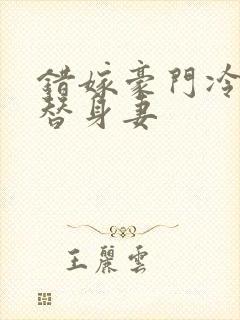 錯嫁豪門冷
替身妻
王麗雲